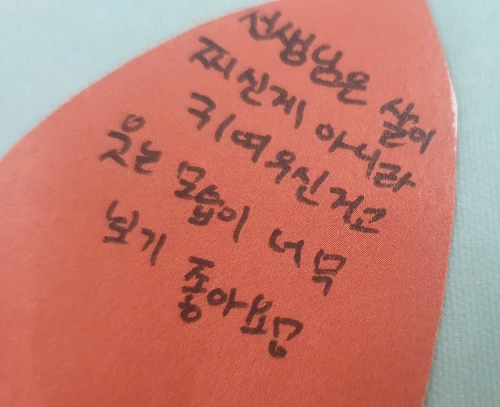 선생님은 살이
찌신게 아니라
귀여우신거고
웃는 모습이 너무
보기 좋아요